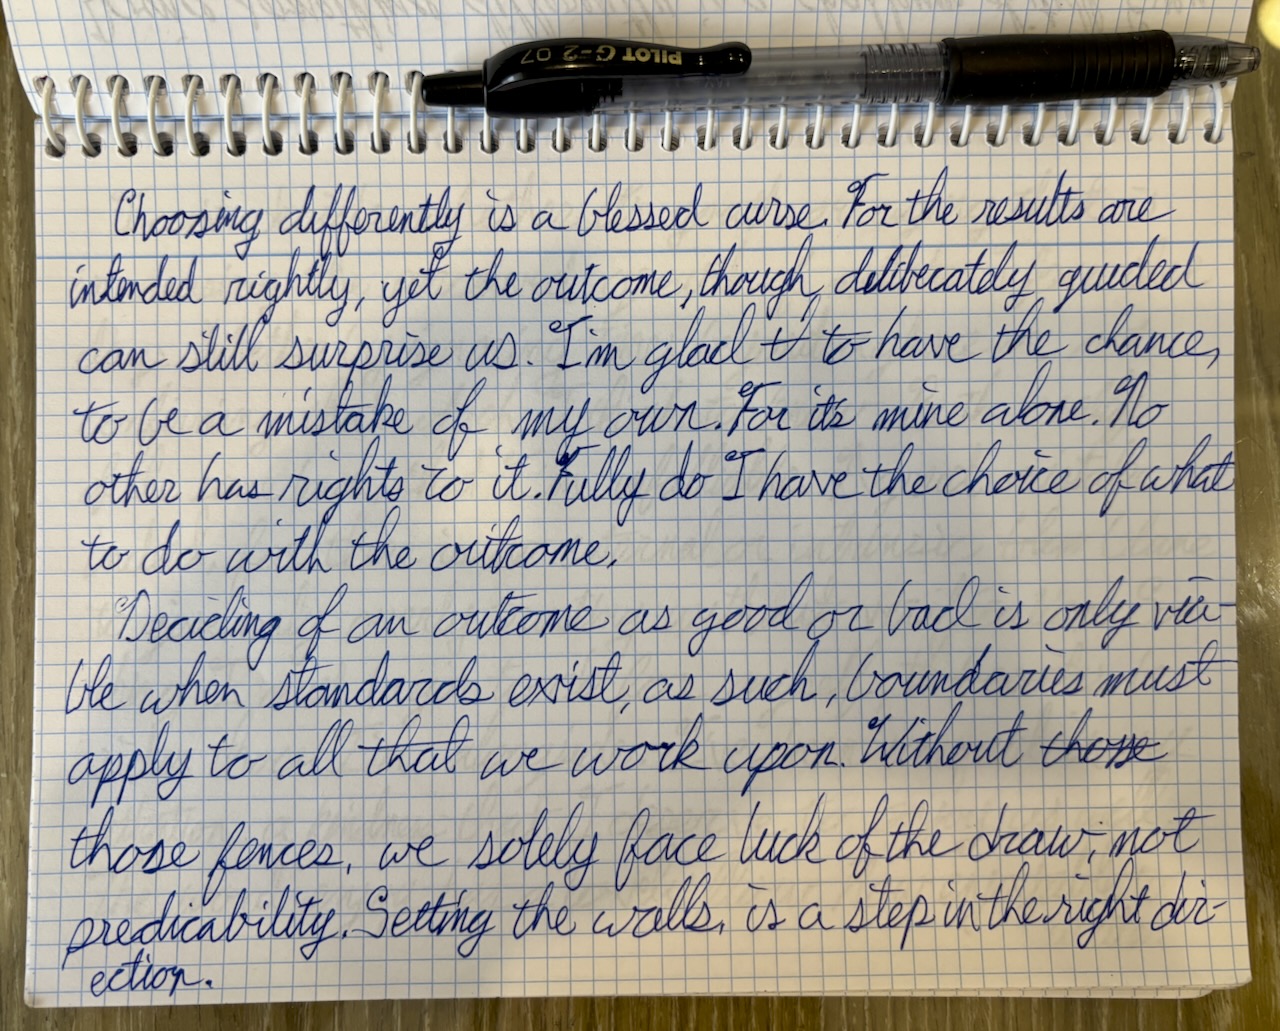 PILOT G-2 07
Choosing differently is a blessed curse. For the results are
intended rightly, yet the outcome, though, deliberately guided
can still surprise us. I'm glad t to have the chance,
to be a mistake of my own. For it's mine alone. No
other has rights to it. Fully do I have the choice of what
to do with the outcome.
Deciding of an outcome as good or bad is only via-
ble when standards exist, as such, boundaries must
apply to all that we work upon. Without those
those fences, we solely face luck of the draw; not
predicability. Setting the walls, is a step in the right dir-
ection.